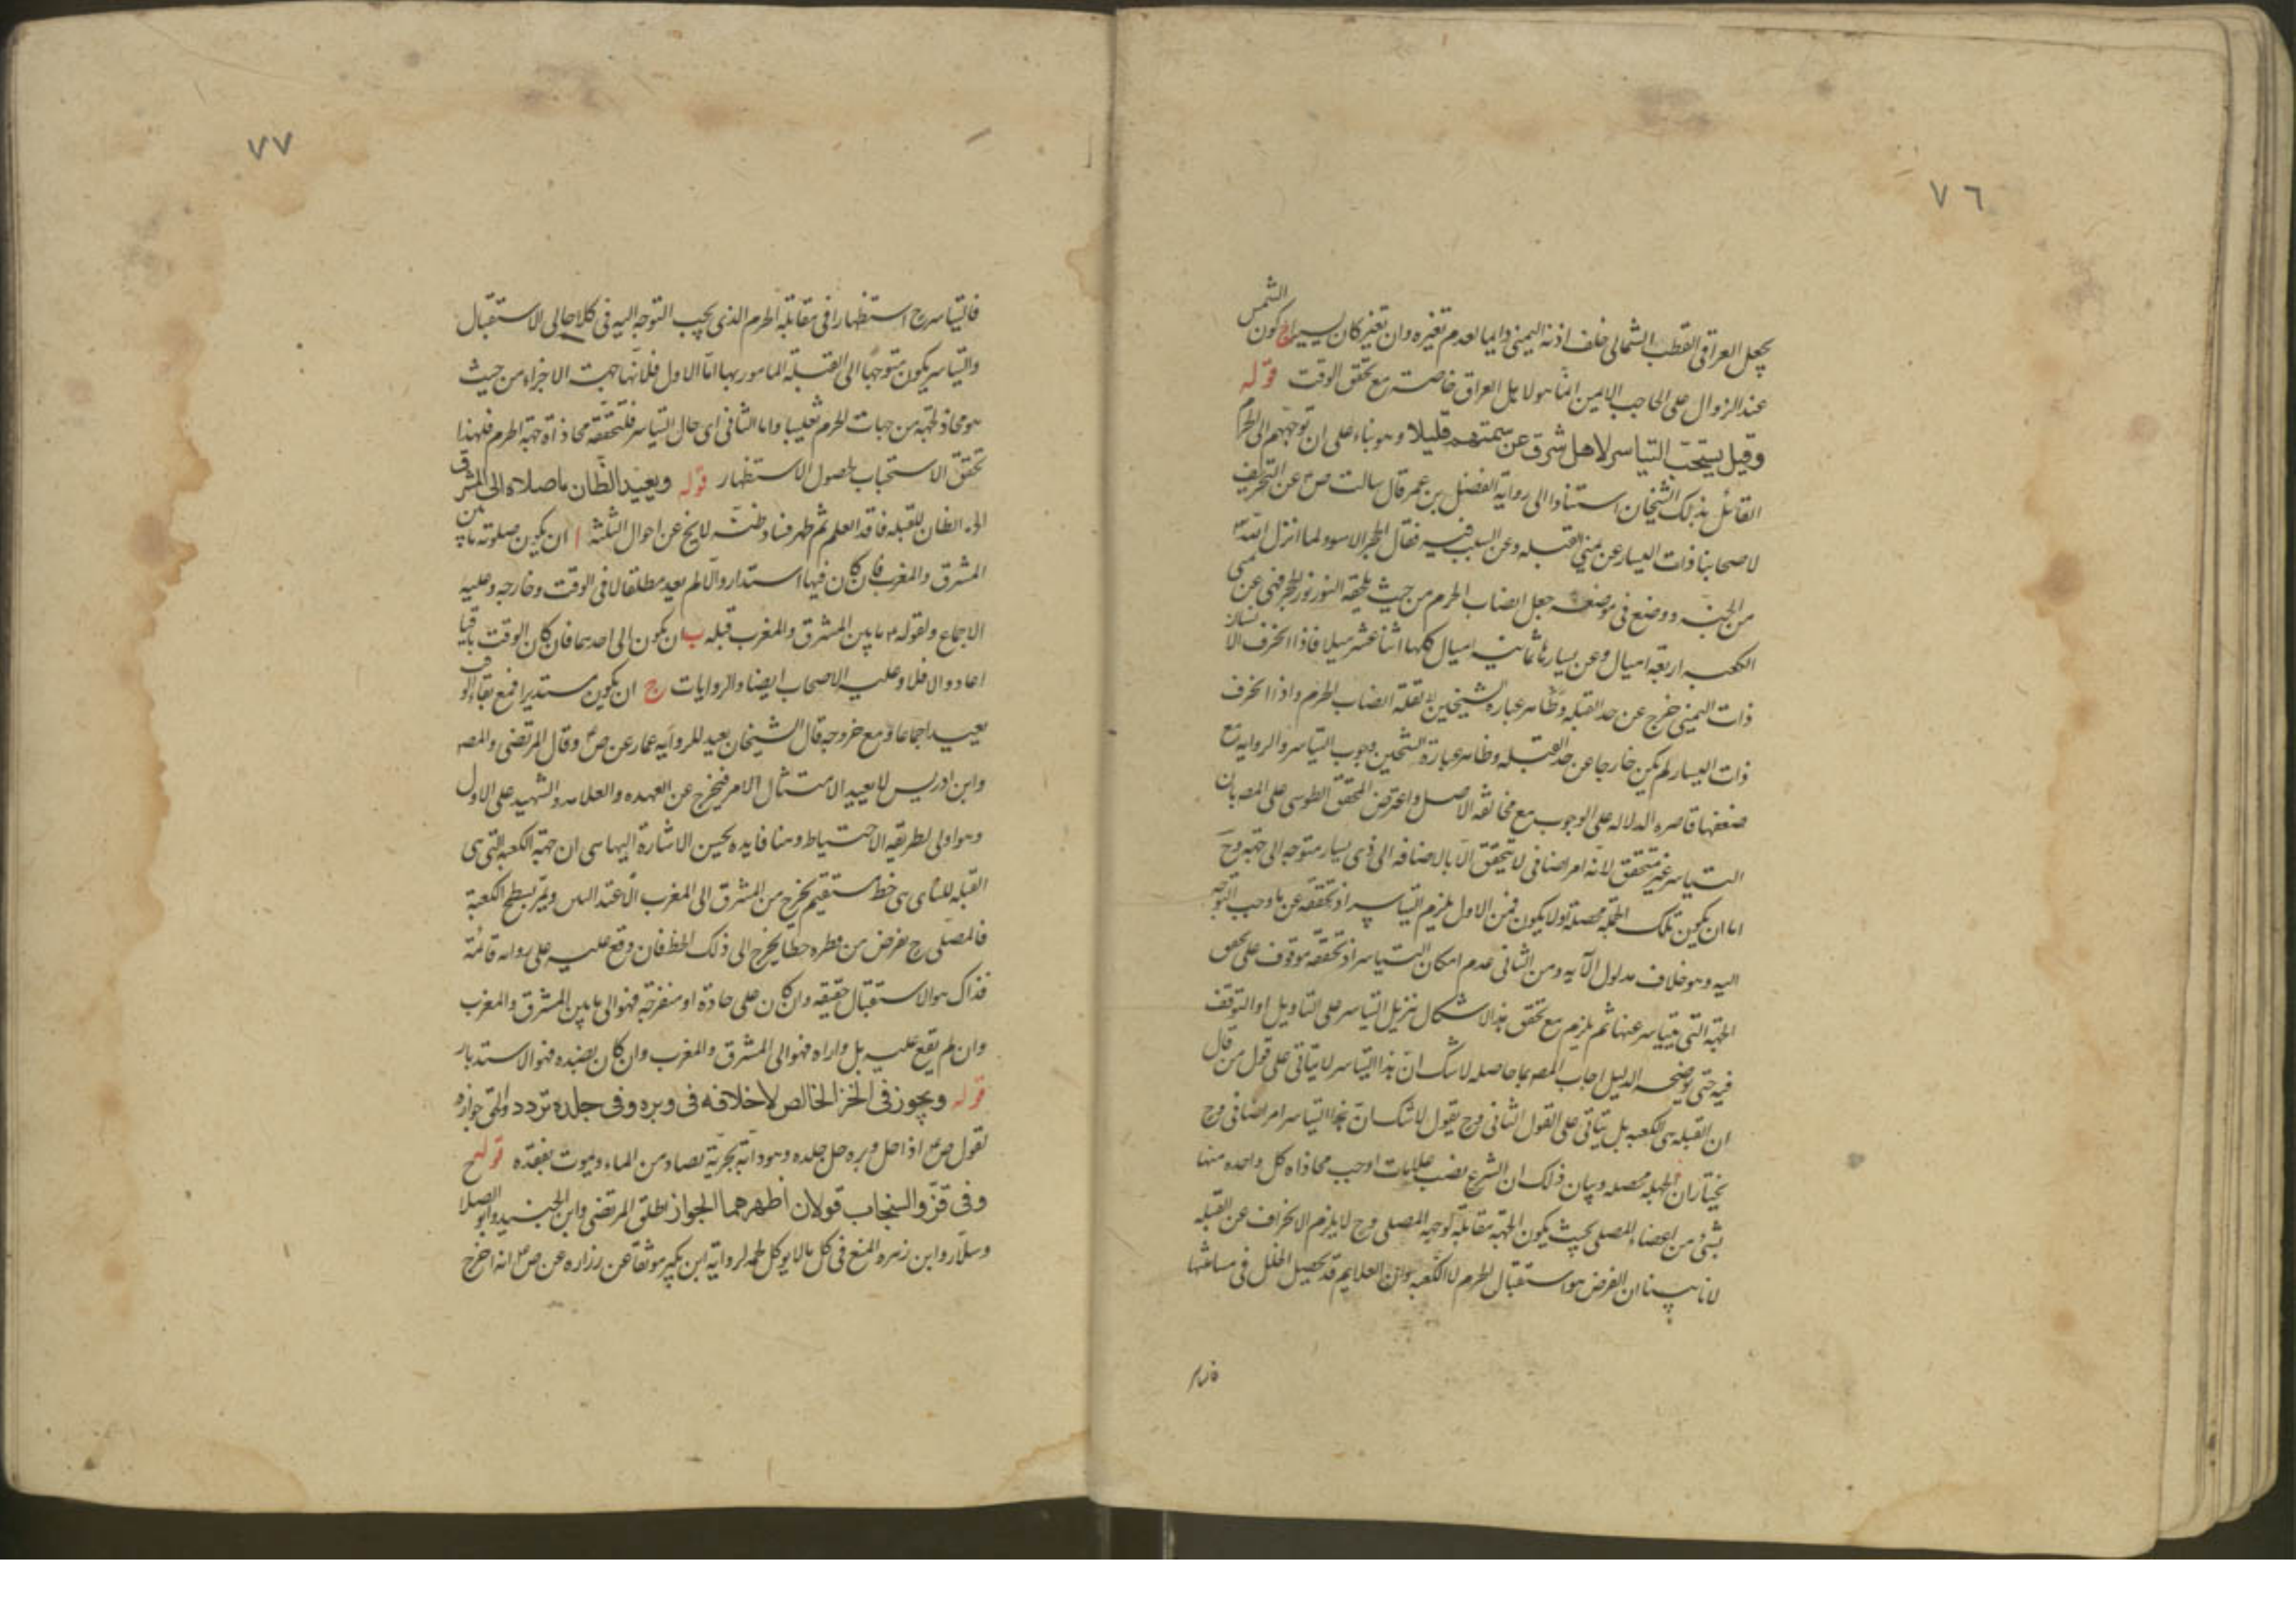 ٧٦
الشمس
يجعل العراقي القطب الشمالي خلف اذنه اليمنى دايما لعدم تغيره وان تغير كان يسيرا ج كون
عند الزوال على الحاجب الايمن انما هو لاهل العراق خاصة مع تحقق الوقت قوله
وقيل يستحب التياسر لاهل شرق عن سمتهم قليلا وهو بناء على ان توجههم الى الحرام
القائل بذلك الشيخان استنادا الى رواية المفضل بن عمر قال سالت ص عن التحريف
لاصحابنا ذات اليسار عن يمنى القبله وعن السبب فيه فقال الحجر الاسود لما انزل الله
من الجنة ووضع في موضعه جعل انصاب الحرم من حيث يلحقه النور نور الحجر فهي عن يمنى
الكعبه اربعة اميال وعن يسارها ثمانيه اميال كلها اثنا عشر ميلا فاذا انحرف الانسان
ذات اليمنى خرج عن حد القبله وظاهر عبارة الشيخين لقلة انصاب الحرم واذا انحرف
ذات اليسار لم يكن خارجا عن حد القبله وظاهر عبارة الشيخين وجوب التياسر والروايه مع
ضعفها قاصره الدلاله على الوجوب مع مخالفة الاصل واعترض المحقق الطوسي على المصه بان
التياسر غير متحقق لانه امر اضافي لا يتحقق الا بالاضافه الى ذي يسار متوجه الى جهة وح
اما ان يكون تلك الجهة محصلة او لا يكون فمن الاول يلزم التياسر اذ تحققه عن ما وجب التوجه
اليه وهو خلاف مدلول الآيه ومن الثاني عدم امكان التياسر اذ تحققه موقوف على تحقق
الجهة التي يتياسر عنها ثم يلزم مع تحقق هذا الاشكال تنزيل التياسر على التاويل او التوقف
فيه حتى يوضحه الدليل اجاب المصه بما حاصله لا شك ان هذا التياسر لا يتاتى على قول من قال
ان القبله هي الكعبه بل يتاتى على القول الثاني وح يقول لا شك ان هذا التياسر امر اضافي وح
يختار ان الجهة محصله وبيان ذلك ان الشرع نصب علامات اوجب محاذاة كل واحده منها
بشئ من اعضاء المصلي بحيث يكون الجهة مقابلة لوجه المصلي وح لا يلزم الانحراف عن القبله
لانا بينا ان الفرض هو استقبال الحرم لا الكعبه وان العلايم قد يحصل الخلل في مسامتتها
فالتياسر
٧٧
فالتياسر ح استظهارا في مقابلة الحرم الذي يجب التوجه اليه في كلا حالي الاستقبال
والتياسر يكون متوجها الى القبلة المامور بها اما الاول فلانها جهت الاجزاء من حيث
هو محاذ لجهة من جهات الحرم تغليبا واما الثاني اي حال التياسر فلتحققه محاذاة جهة الحرم فلهذا
تحقق الاستحباب لحصول الاستظهار قوله ويعيد الظان ما صلاه الى المشرق
الخ الظان للقبله فاقد العلم ثم ظهر فساد ظنه لا يخ عن احوال الثلثة ا ان يكون صلوته ما بين
المشرق والمغرب فان كان فيها استدار والا لم يعد مطلقا لا في الوقت وخارجه وعليه
الاجماع ولقوله م ما بين المشرق والمغرب قبله ب ان يكون الى احدهما فان كان الوقت باقيا
اعاد والا فلا وعليه الاصحاب ايضا والروايات ج ان يكون مستديرا فمع بقاء الوقت
يعيد اجماعا ومع خروجه قال الشيخان يعيد للروايه عمار عن ص وقال المرتضى والمصه
وابن ادريس لا يعيد لامتثال الامر فيخرج عن العهده والعلامه والشهيد على الاول
وهو اولى لطريقه الاحتياط وهنا فايده يحسن الاشارة اليها هي ان جهة الكعبه التي هي
القبله للنائي هي خط مستقيم يخرج من المشرق الى المغرب الاعتدالين ويمر بسطح الكعبة
فالمصلي ح يفرض من نظره خطا يخرج الى ذلك الخط فان وقع عليه على زوايه قائمة
فذاك هو الاستقبال حقيقه وان كان على حادة او منفرجة فهو الى ما بين المشرق والمغرب
وان لم يقع عليه بل وازاه فهو الى المشرق والمغرب وان كان بضده فهو الاستدبار
قوله ويجوز في الخز الخالص لا خلاف في وبره وفي جلده تردد والحق جوازه
لقول ص اذا حل وبره حل جلده وهو دابة بحرية تصاد من الماء ويموت بفقده قوله
وفي قزّ والسنجاب قولان اظهرهما الجواز اطلق المرتضى وابن الجنيد وابو الصلاح
وسلار وابن زهره المنع في كل ما لا يوكل لحمه لرواية ابن بكير موثقا عن زراره عن ص انه اخرج